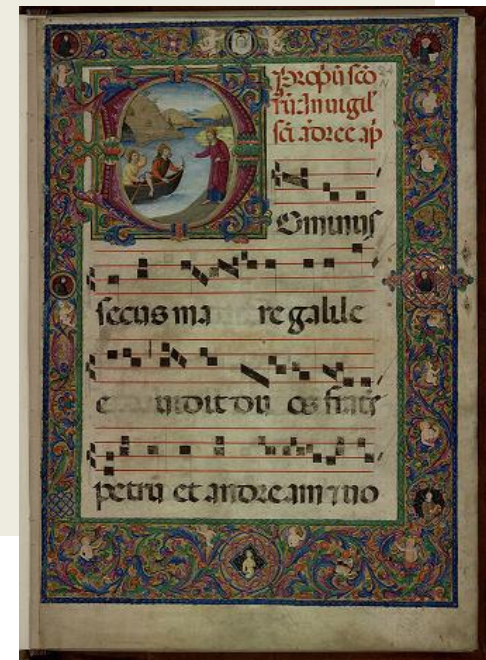 Propriū sco
rū. In uigil
sci ādree ap
Ominus
secus ma re galile
e uidit du os fratr
petrū et andream ⁊ uo